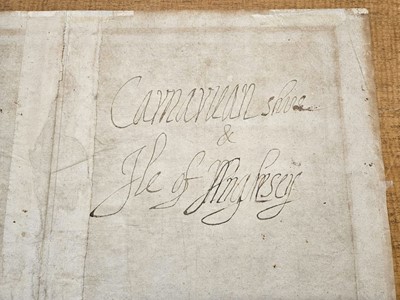 Carnarvan shire
&
Ile of Anglesey